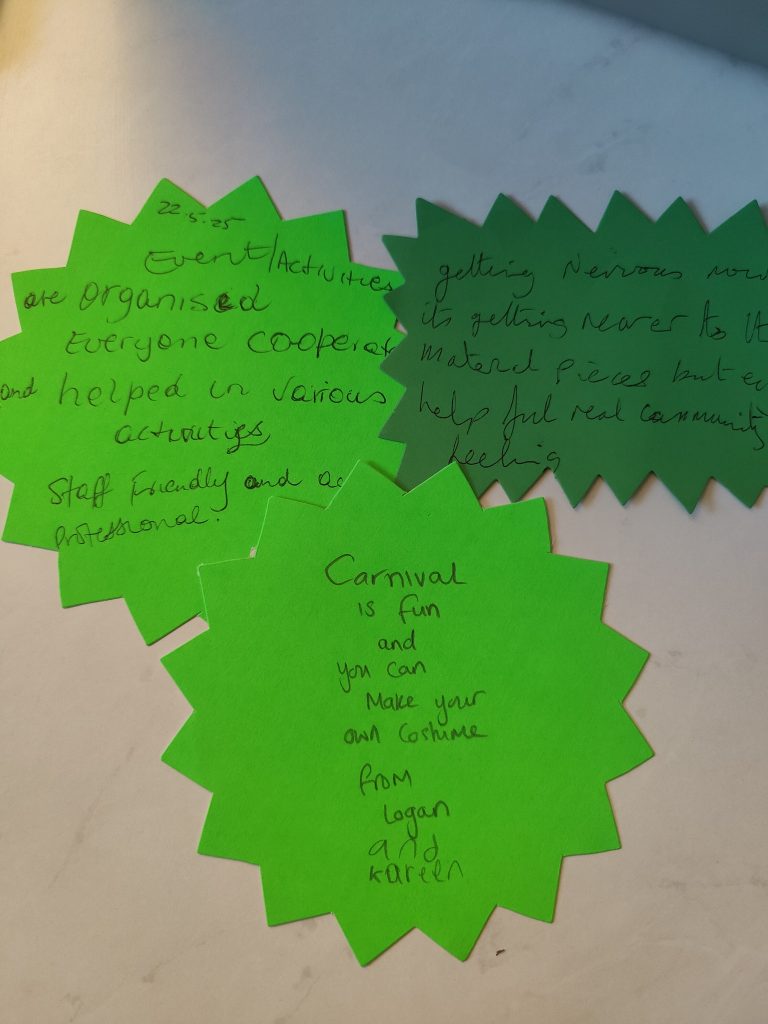 22.5.25
Event/Activities
are organised
Everyone cooperat
and helped in various
activities
Staff Friendly and
professional.
getting Nervous now
its getting nearer to
material pieces but
help ful real community
feeling
Carnival
is fun
and
you can
Make your
own Costume
from
Logan
and
kareen